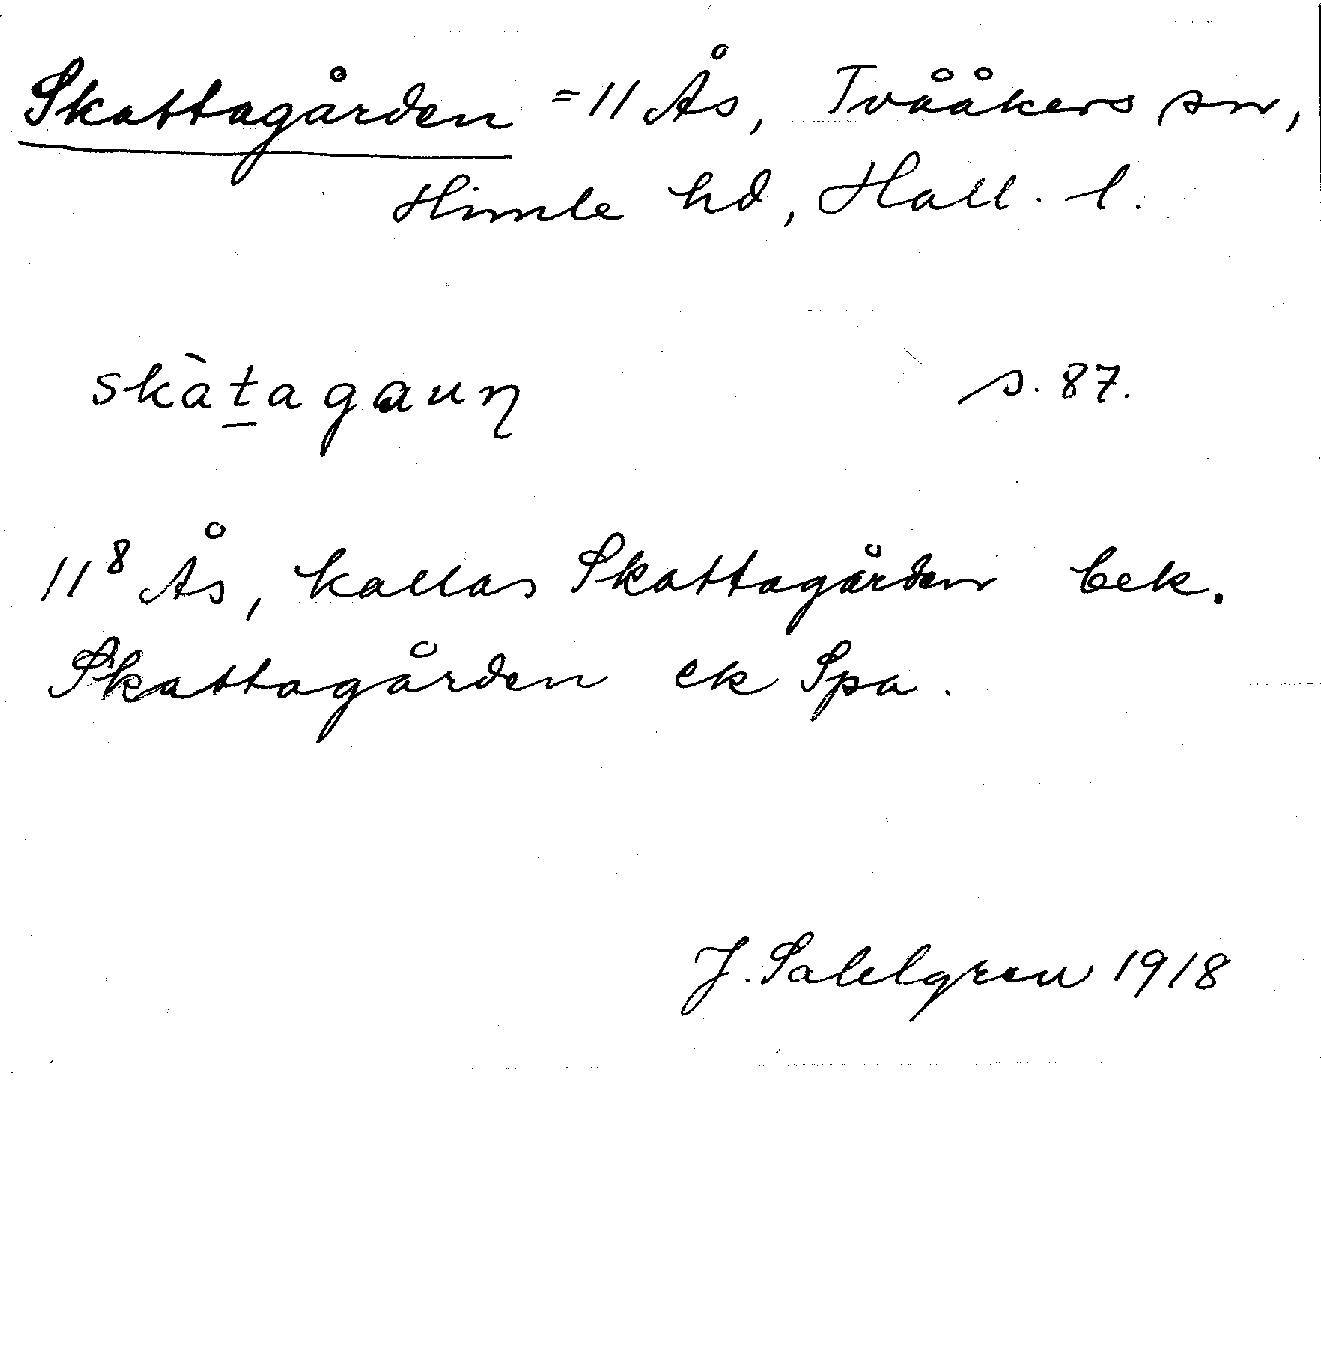 Skattagården = 11 Ås, Tvååkers sn,
Himle hd, Hall. l.
skàt̲agauɳ s. 87.
11⁸ Ås, kallas Skattagården bek.
Skattagården ek Spa.
J. Sahlgren 1918